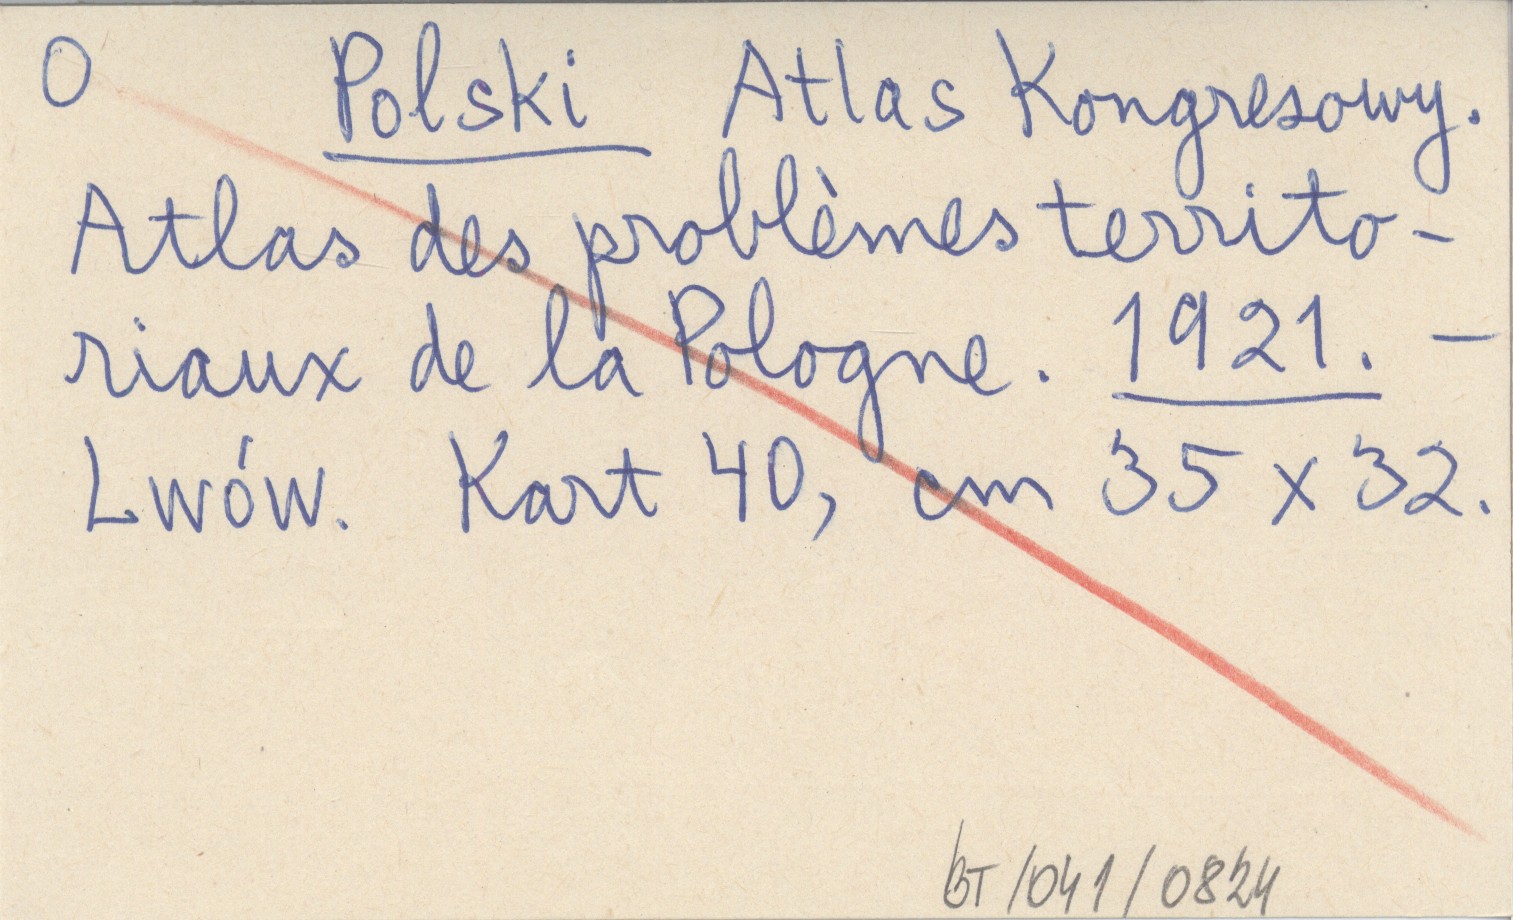 O Polski Atlas Kongresowy.
Atlas des problèmes territo-
riaux de la Pologne. 1921. –
Lwów. Kart 40, cm 35 x 32.
BT/041/0824